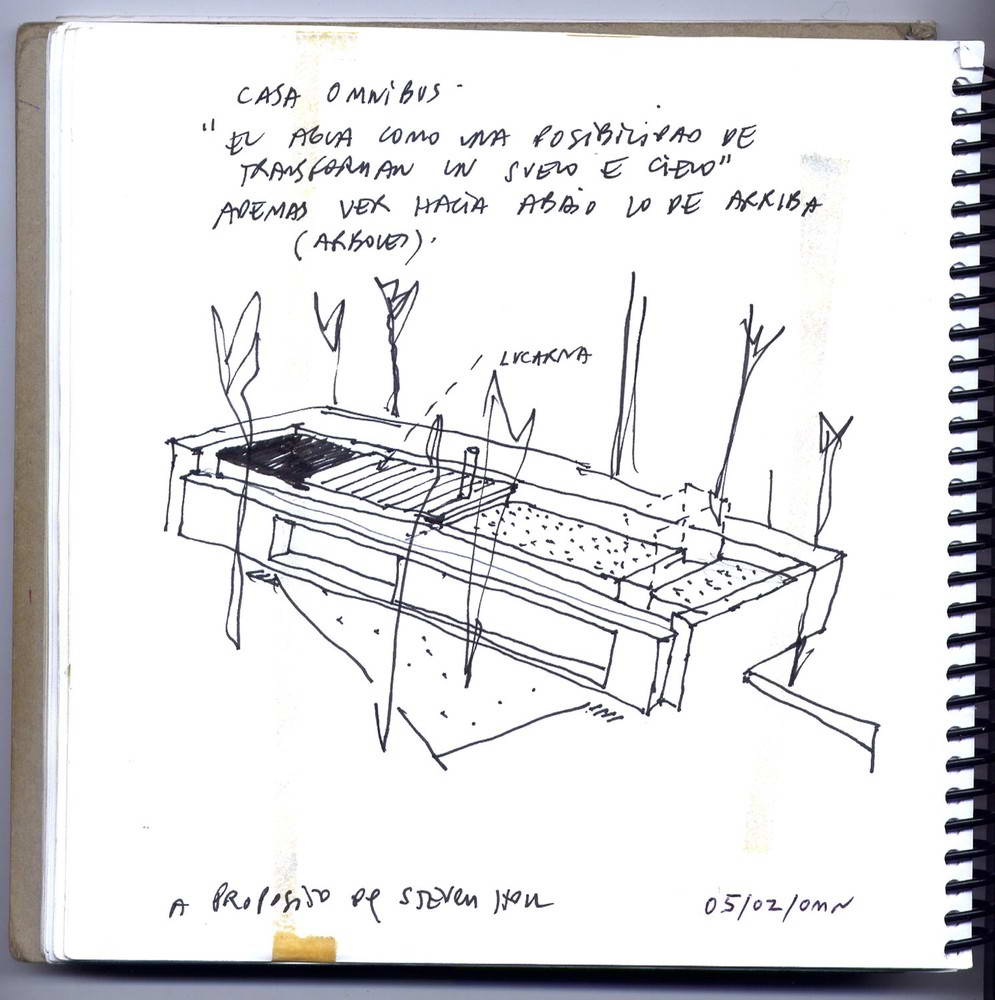 CASA OMNIBUS
"EL AGUA COMO UNA POSIBILIDAD DE
TRANSFORMAR UN SUELO E CIELO"
ADEMAS VER HACIA ABAJO LO DE ARRIBA
(ARBOLES).
LUCARNA
A PROPOSITO DE STEVEN HOLL
05/02/OMN